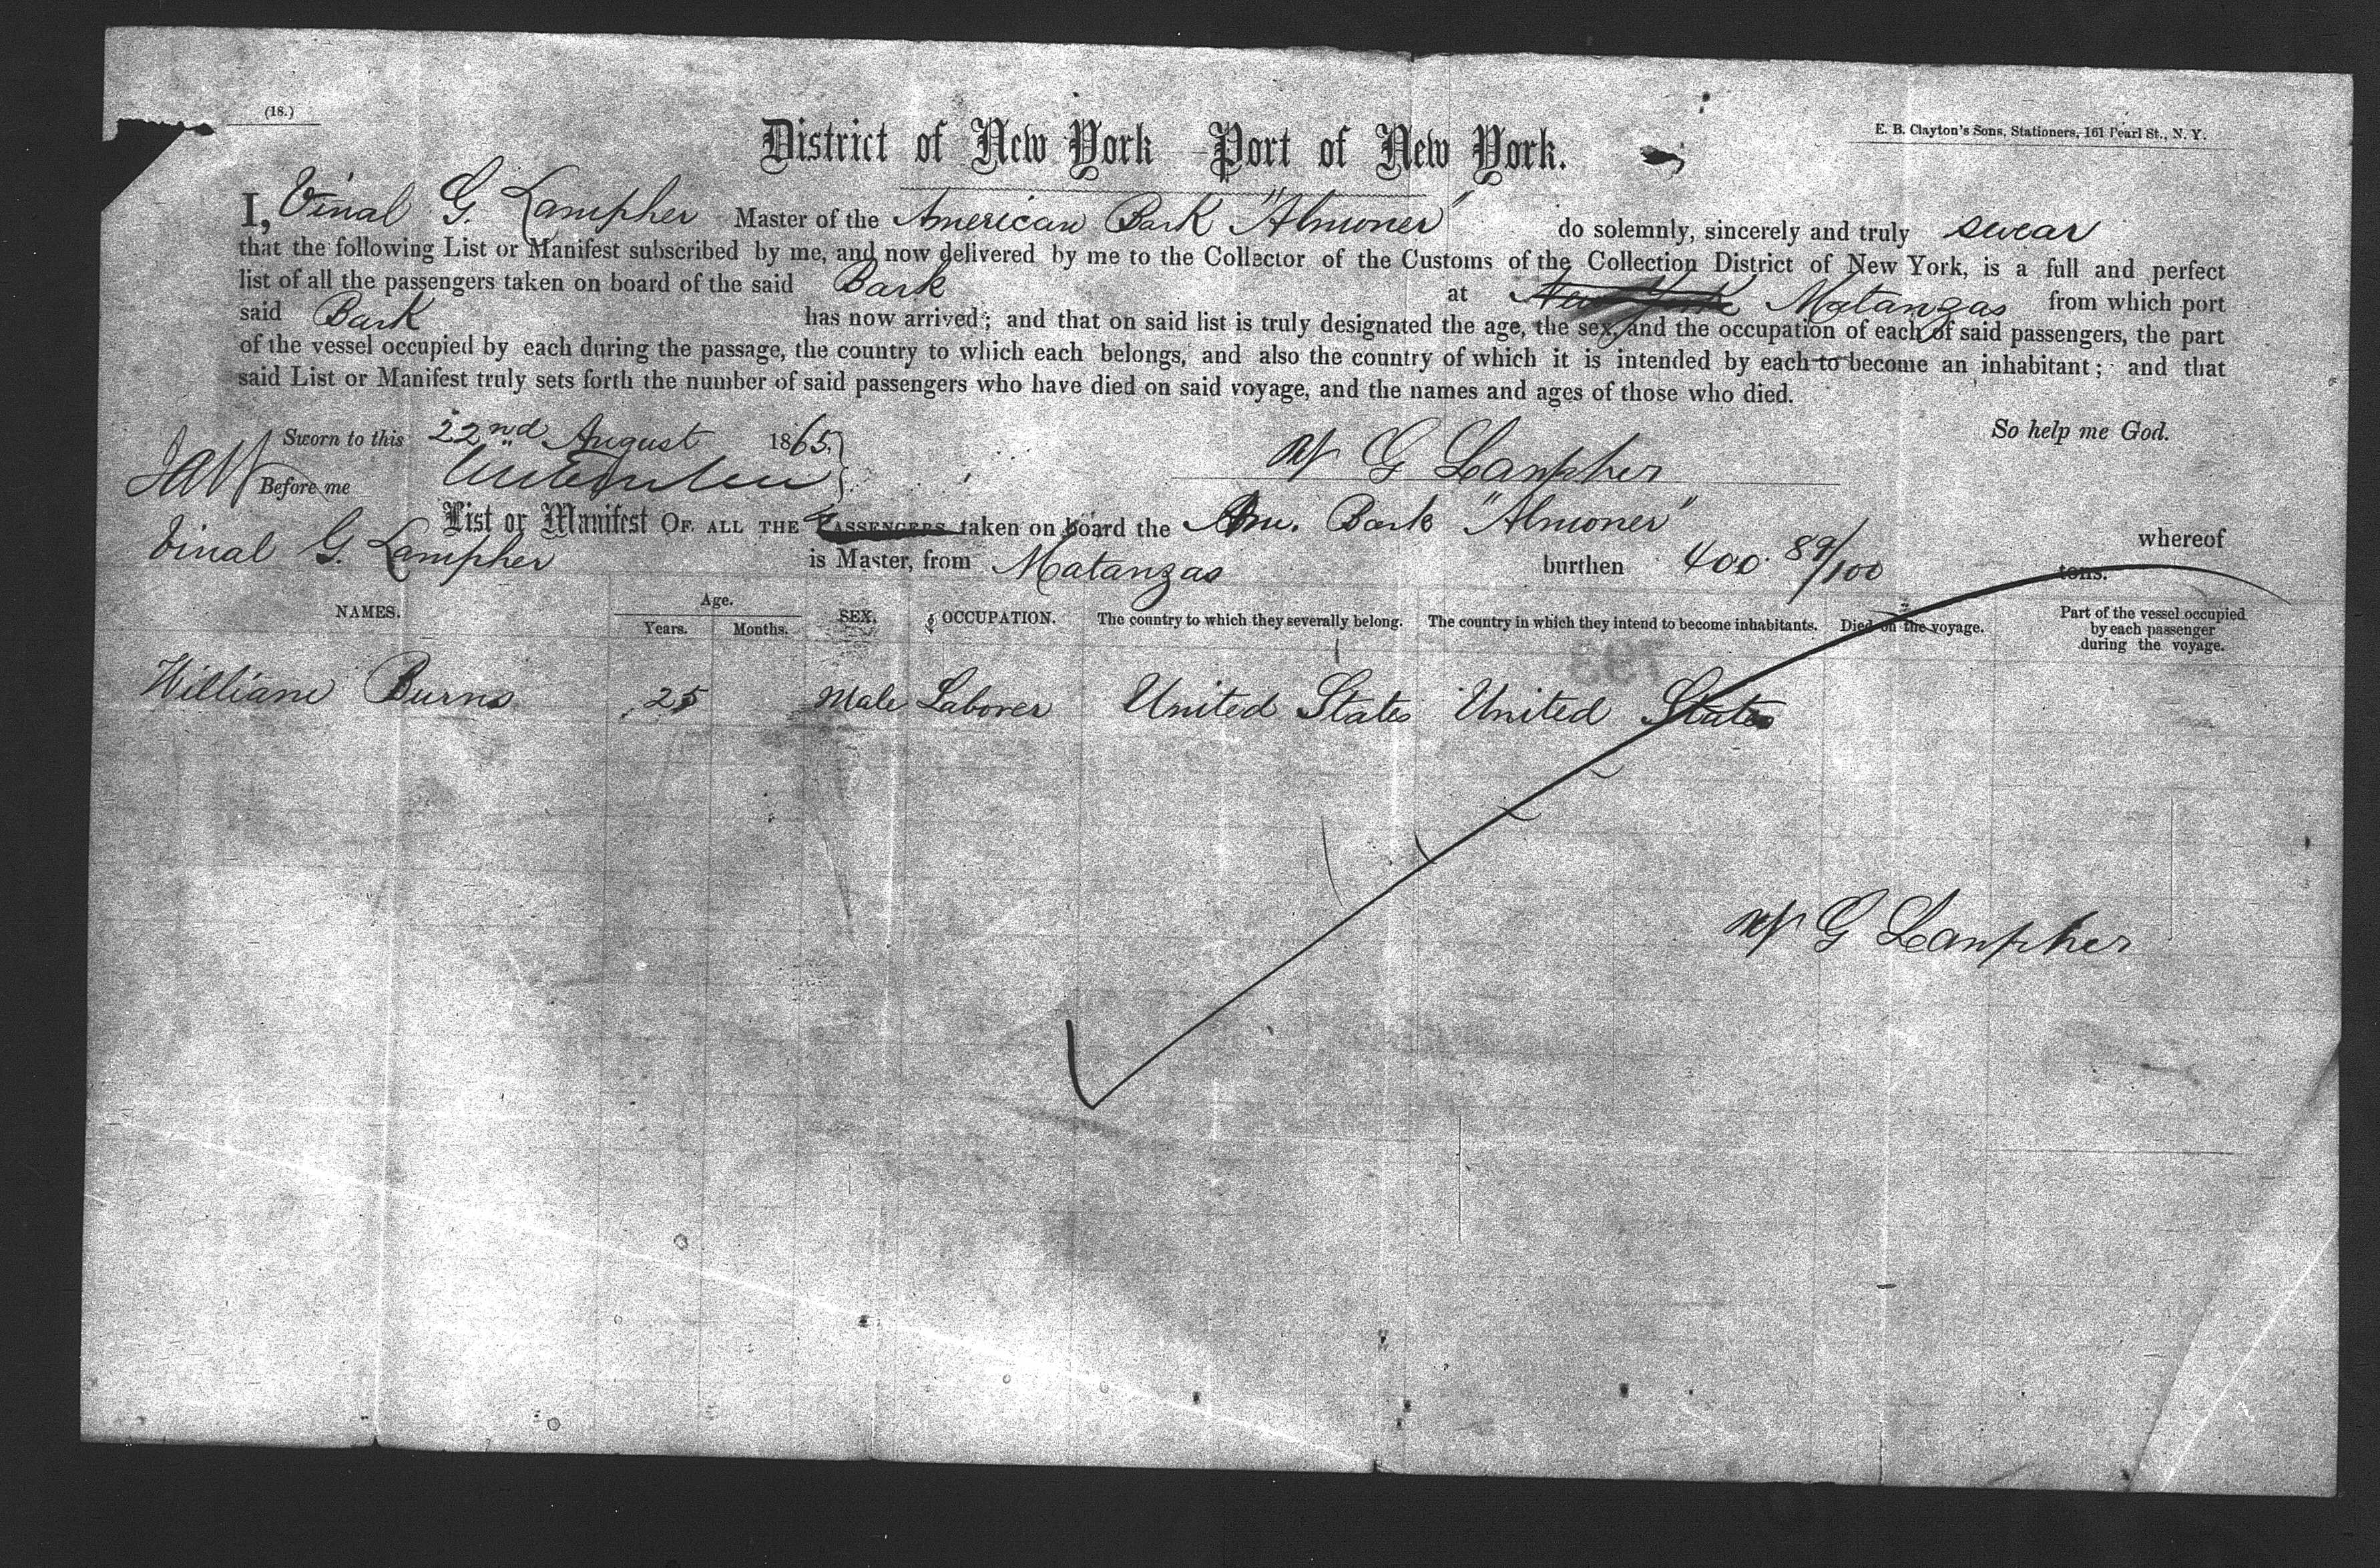 (18.)
E. B. Clayton's Sons, Stationers, 161 Pearl St., N. Y.
District of New York Port of New York.
I, Vinal G. Lampher Master of the American Bark "Almoner" do solemnly, sincerely and truly swear
that the following List or Manifest subscribed by me, and now delivered by me to the Collector of the Customs of the Collection District of New York, is a full and perfect
list of all the passengers taken on board of the said Bark at New York Matanzas from which port
said Bark has now arrived; and that on said list is truly designated the age, the sex, and the occupation of each of said passengers, the part
of the vessel occupied by each during the passage, the country to which each belongs, and also the country of which it is intended by each to become an inhabitant; and that
said List or Manifest truly sets forth the number of said passengers who have died on said voyage, and the names and ages of those who died.
So help me God.
Sworn to this 22nd August 1865.
Before me
G Lanpher
List or Manifest OF ALL THE PASSENGERS taken on board the Am. Bark "Almoner" whereof
Vinal G. Lampher is Master, from Matanzas burthen 400. 89/100 tons.
NAMES. Age. Years. Months. SEX. OCCUPATION. The country to which they severally belong. The country in which they intend to become inhabitants. Died on the voyage. Part of the vessel occupied by each passenger during the voyage.
William Burns 25 Male Laborer United States United States
G Lanpher